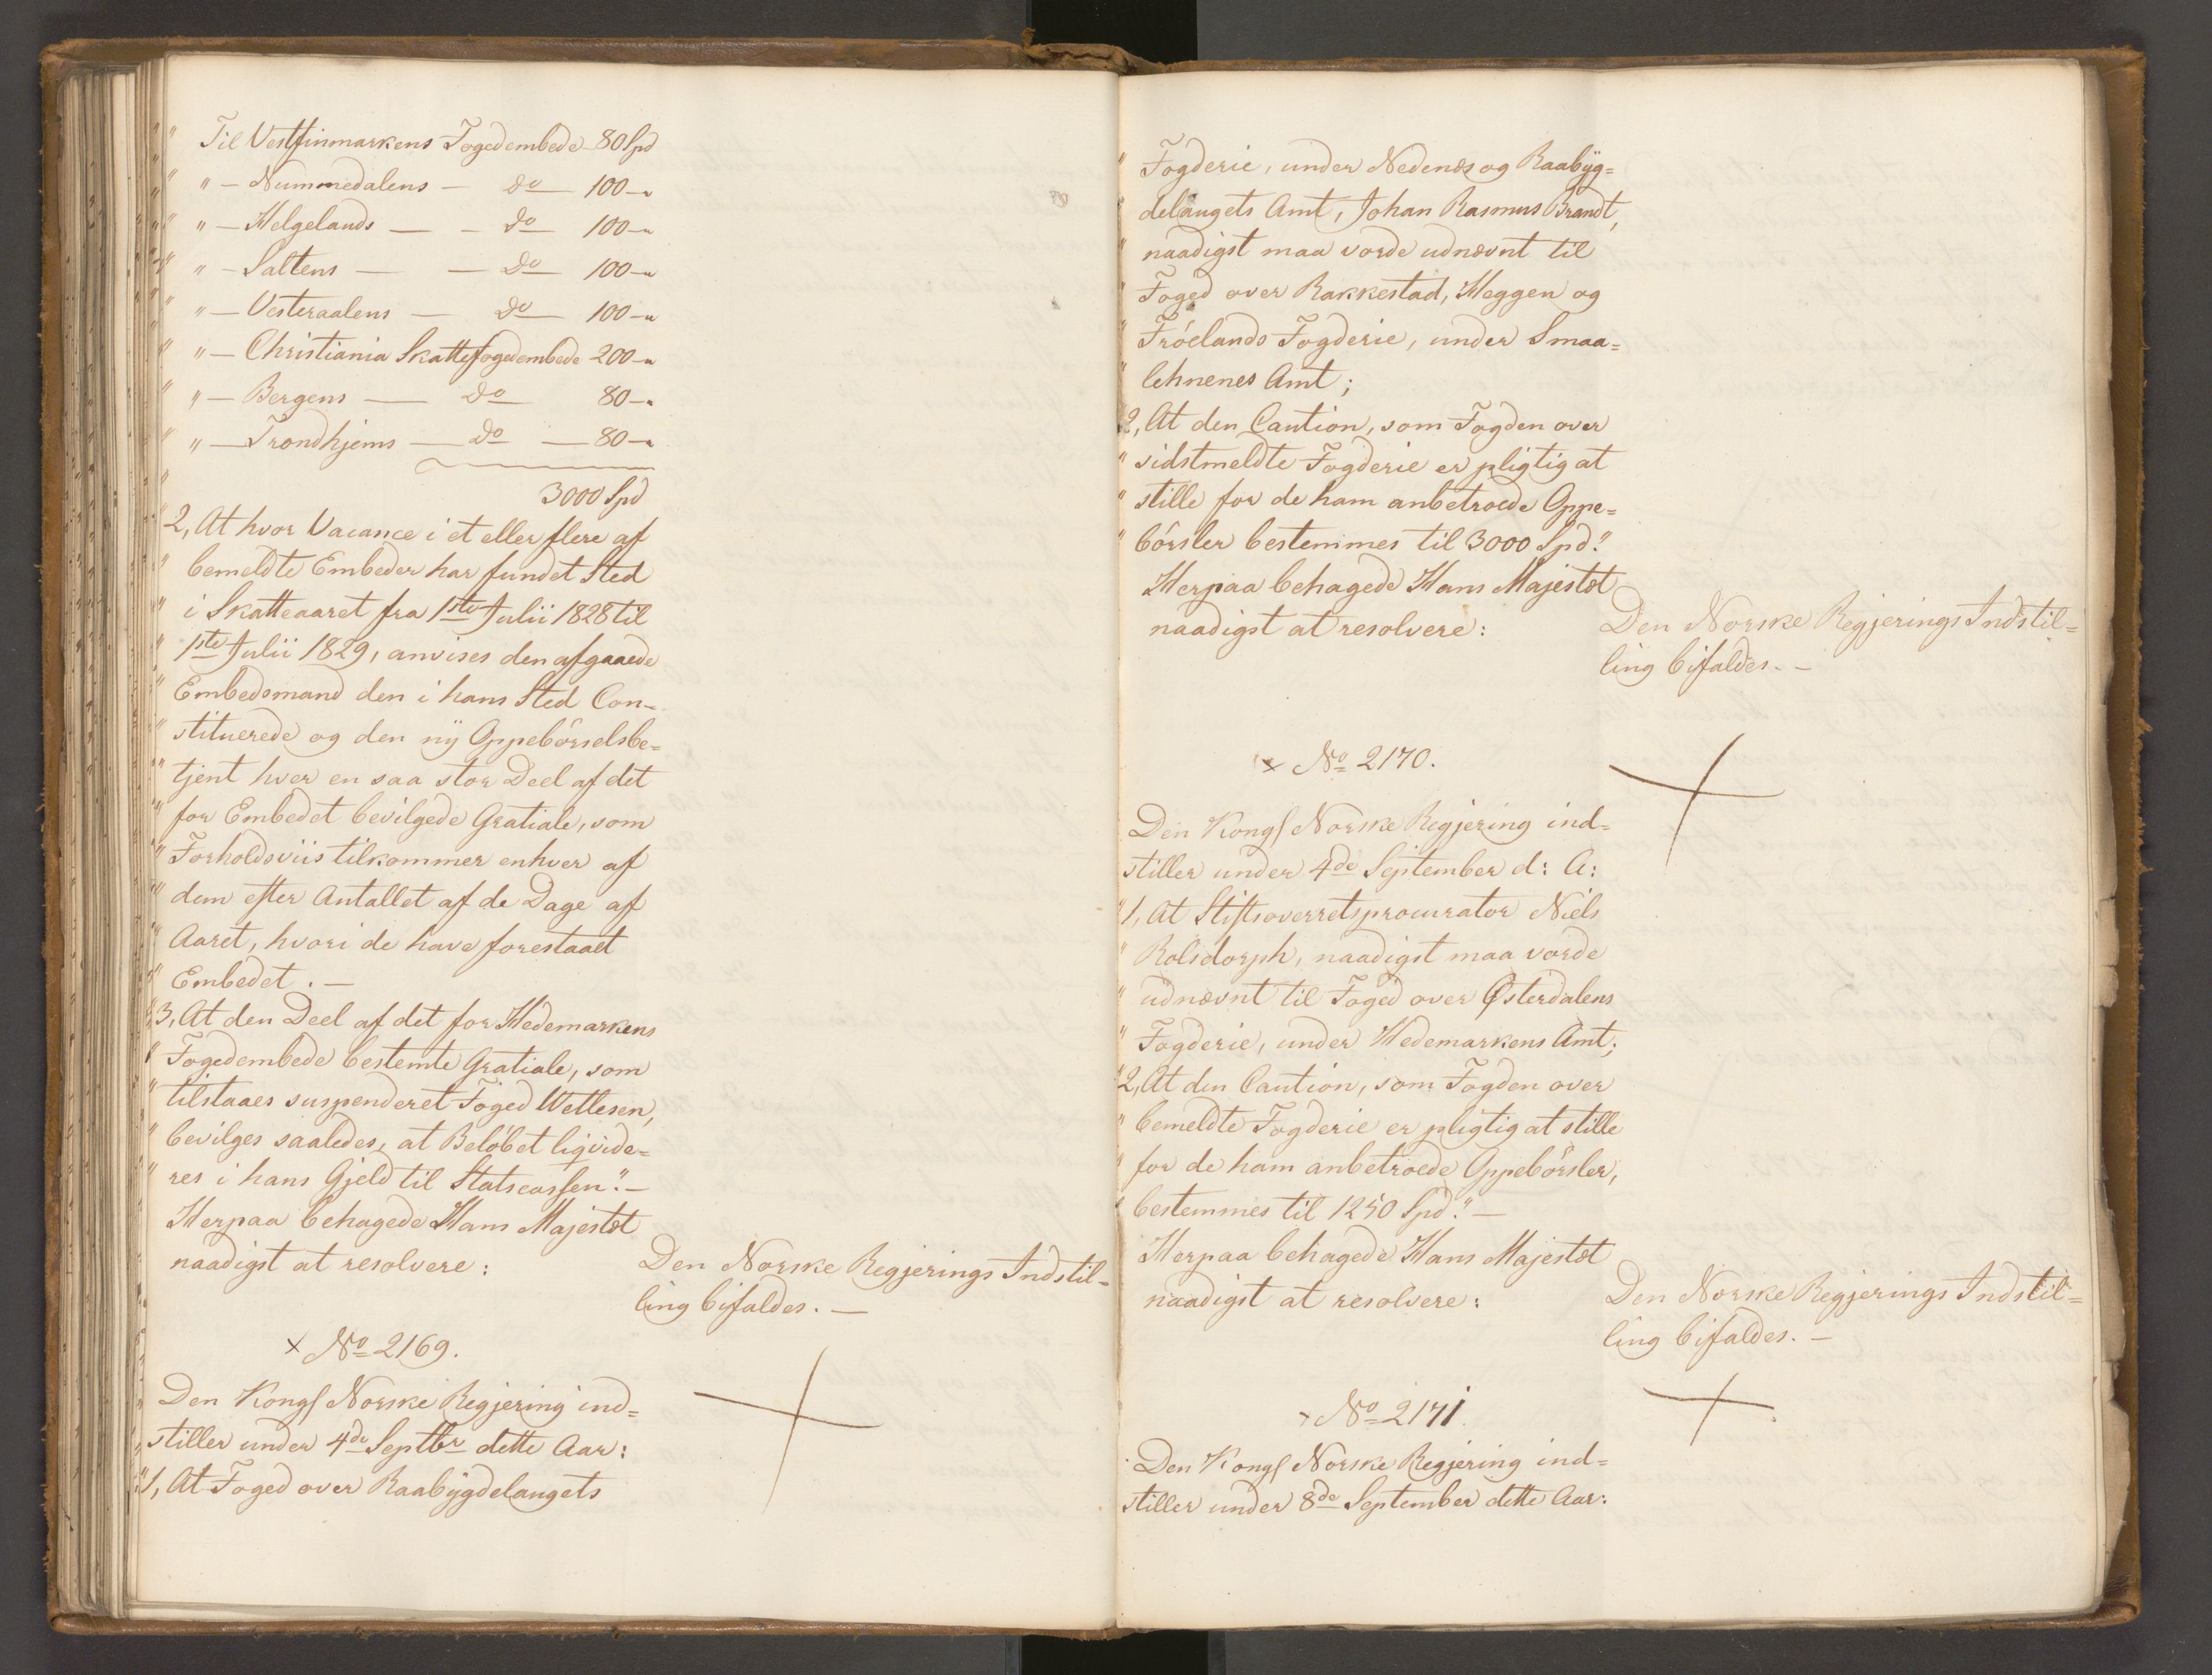 " Til Vestfinmarkens Fogedembede - 80 Spd
" " — Nummedalens — do — 100 — "
" " — Helgelands — — do — 100 — "
" " — Saltens — — do — 100 — "
" " — Vesteraalens — do — 100 — "
" " — Christiania Skattefogedembede 200 — "
" " — Bergens — do 80 — "
" " — Trondhjems — do — 80 — "
" 3000 Spd
" 2, At hvor Vacance i et eller flere af
" bemeldte Embeder har fundet Sted
" i Skatteaaret fra 1ste Julii 1828 til
" 1ste Julii 1829, anvises den afgaaede
" Embedsmand den i hans Sted Con-
" stituerede og den nÿ Oppebörselsbe=
" tjent hver en saa stor Deel af det
" for Embedet bevilgede Gratiale, som
" Forholdsviis tilkommer enhver af
" dem efter Antallet af de Dage af
" Aaret, hvori de have forestaaet
" Embedet. —
" 3, At den Deel af det for Hedemarkens
" Fogedembede bestemte Gratiale, som
" tilstaaes suspenderet Foged Wetlesen,
" bevilges saaledes, at Belöbet liqvide=
" res i hans Gjeld til Statscassen." —
Herpaa behagede Hans Majestæt
naadigst at resolvere:
Den Norske Regjerings Indstil=
ling bifaldes. —
× No 2169.
Den Kongl Norske Regjering ind=
stiller under 4de Septbr dette Aar:
"1, At Foged over Raabÿgdelaugets
" Fogderie, under Nedenæs og Raabÿg=
delaugets Amt, Johan Rasmus Brandt,
" naadigst maa vorde udnævnt til
" Foged over Rakkestad, Heggen og
" Fröelands Fogderie, under Smaa=
" lehnenes Amt;
2, At den Caution, som Fogden over
" sidstmeldte Fogderie er pligtig at
" stille for de ham anbetroede Oppe=
" börsler bestemmes til 3000 Spd."
Herpaa behagede Hans Majestæt
naadigst at resolvere:
Den Norske Regjerings Indstil=
ling bifaldes. —
× No 2170.
Den Kongl Norske Regjering ind=
stiller under 4de September d: A:
"1, At Stiftsoverretsprocurator Niels
" Rolsdorph, naadigst maa vorde
" udnævnt til Foged over Østerdalens
" Fogderie, under Hedemarkens Amt;
"2, At den Caution, som Fogden over
" bemeldte Fogderie er pligtig at stille
" for de ham anbetroede Oppebörsler,
" bestemmes til 1250 Spd." —
Herpaa behagede Hans Majestæt
naadigst at resolvere:
Den Norske Regjerings Indstil=
ling bifaldes. —
× No 2171.
Den Kongl Norske Regjering ind=
stiller under 8de September dette Aar: